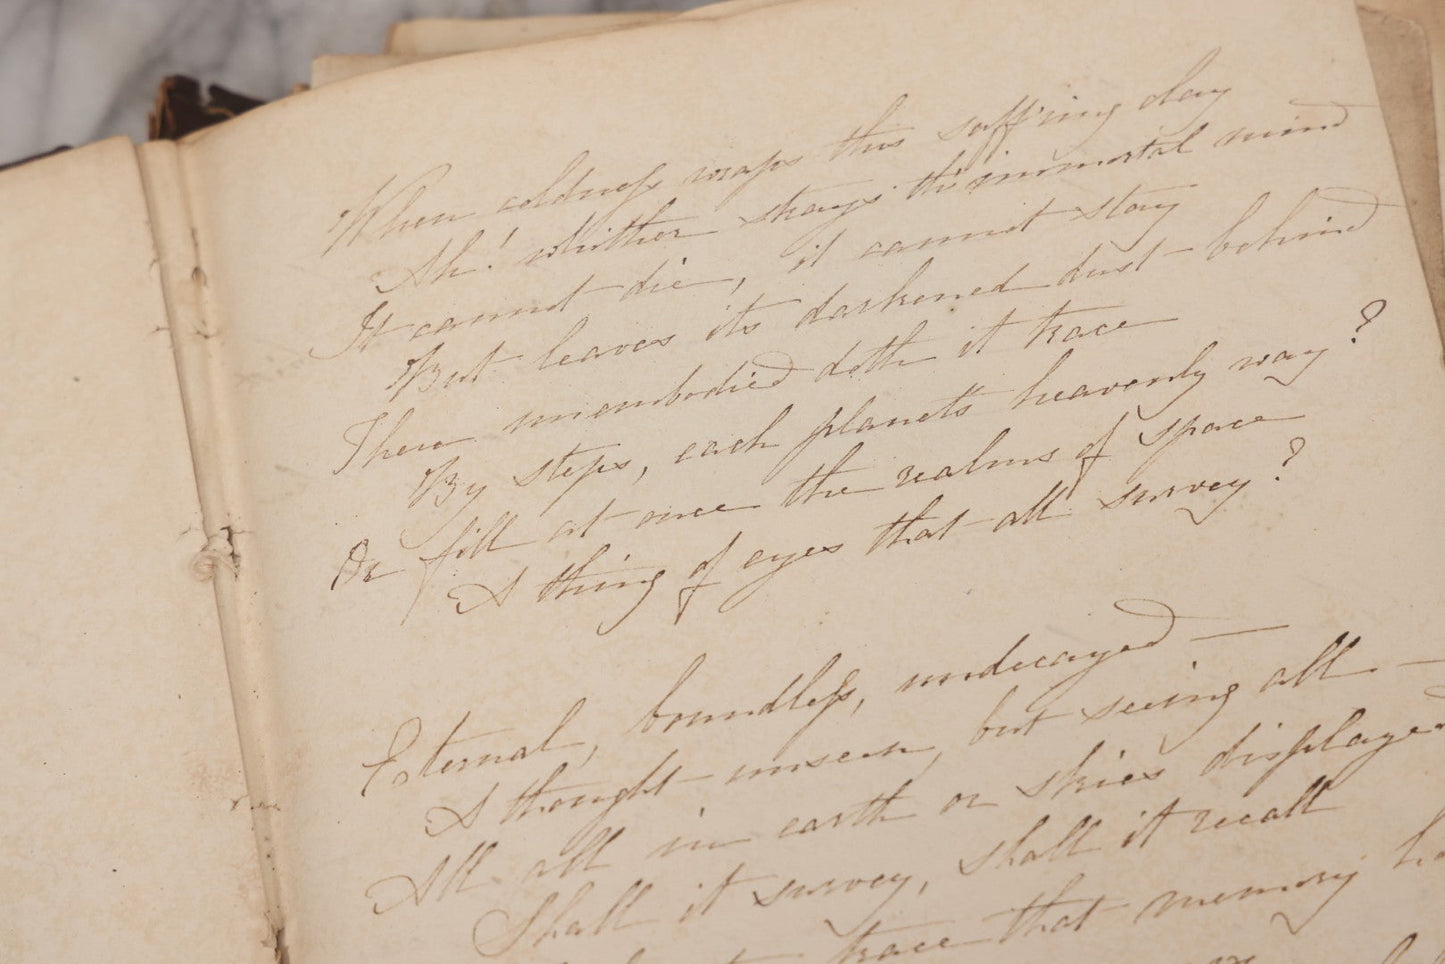 When coldness wraps this suff'ring clay
Ah! whither strays th' immortal mind
It cannot die, it cannot stay
But leaves its darkened dust behind
Then unembodied doth it trace
By steps, each planet's heavenly way?
Or fill at once the realms of space
A thing of eyes that all survey?
Eternal, boundless, undecayed —
A thought unseen, but seeing all —
All all in earth or skies displayed
Shall it survey, shall it recall
trace that memory